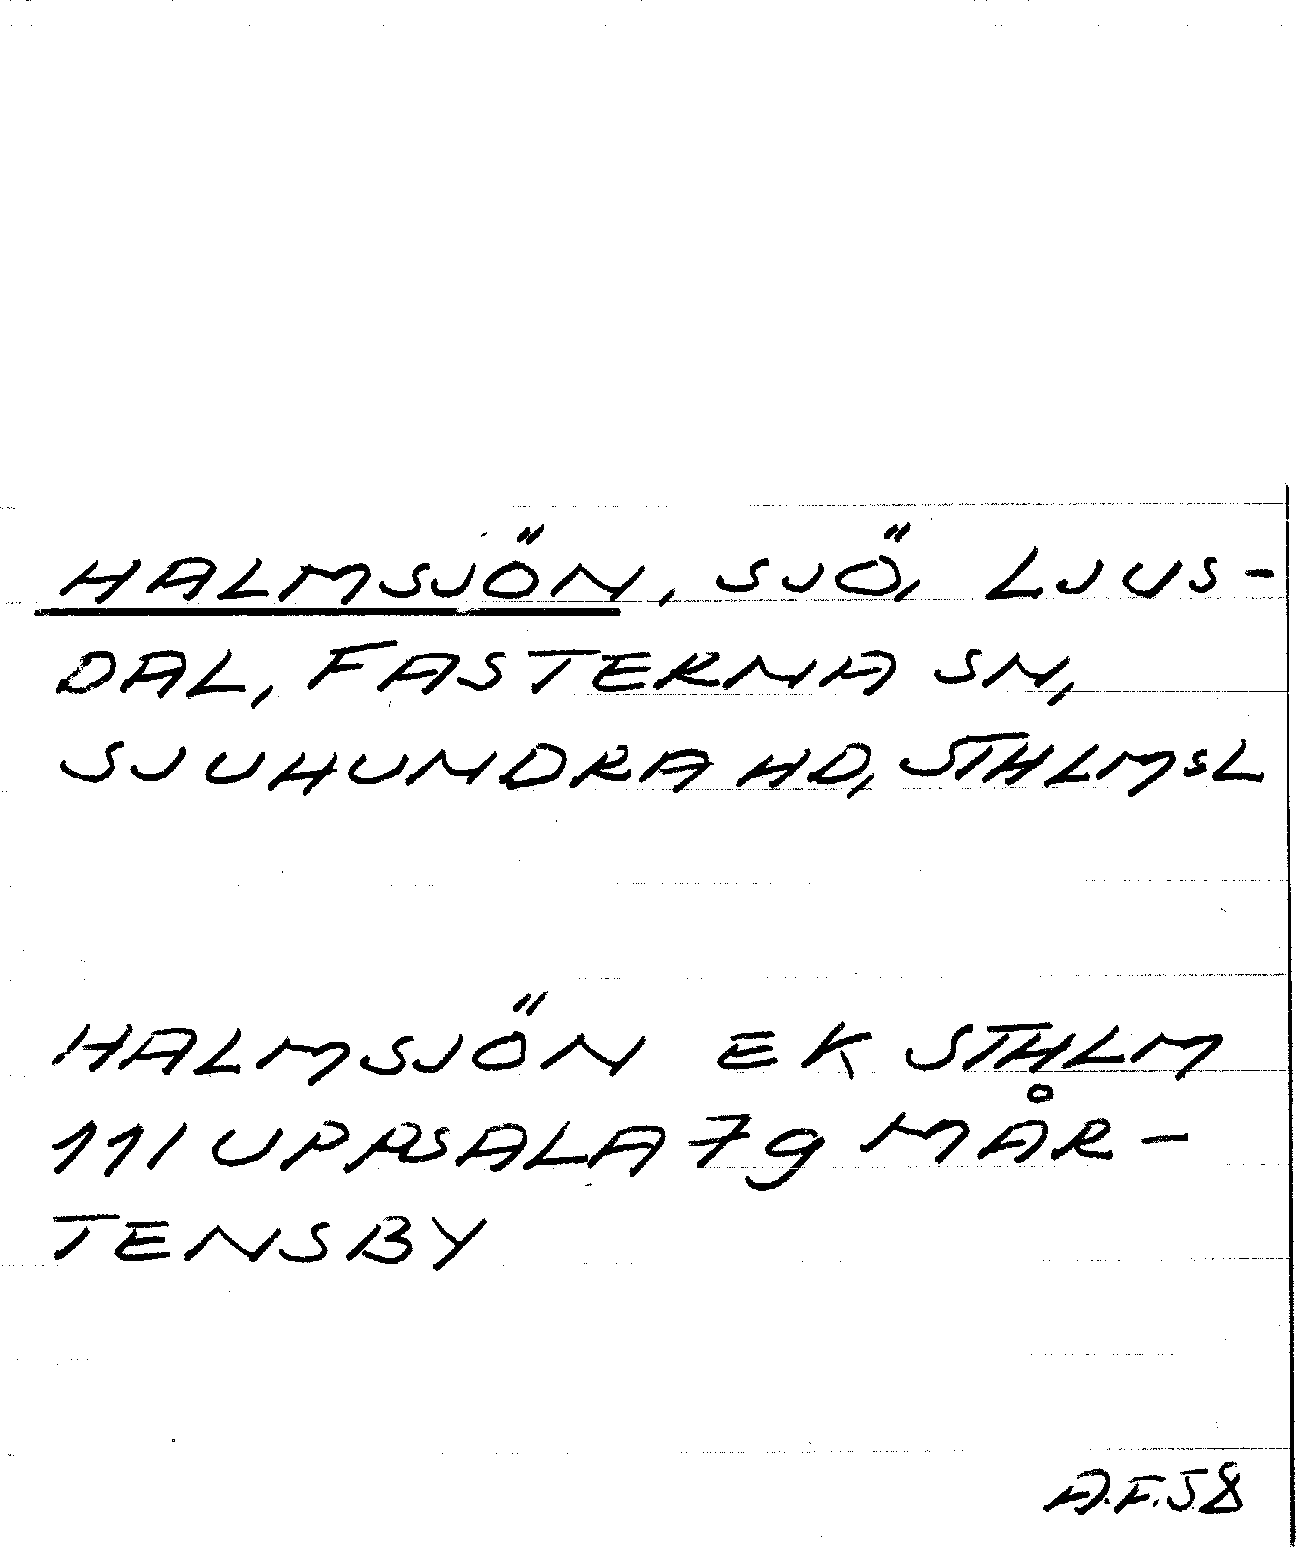 HALMSJÖN, SJÖ, LJUS-
DAL, FASTERNA SN,
SJUHUNDRA HD, STHLMSL
HALMSJÖN EK STHLM
111 UPPSALA 79 MÅR-
TENSBY
A.F.58